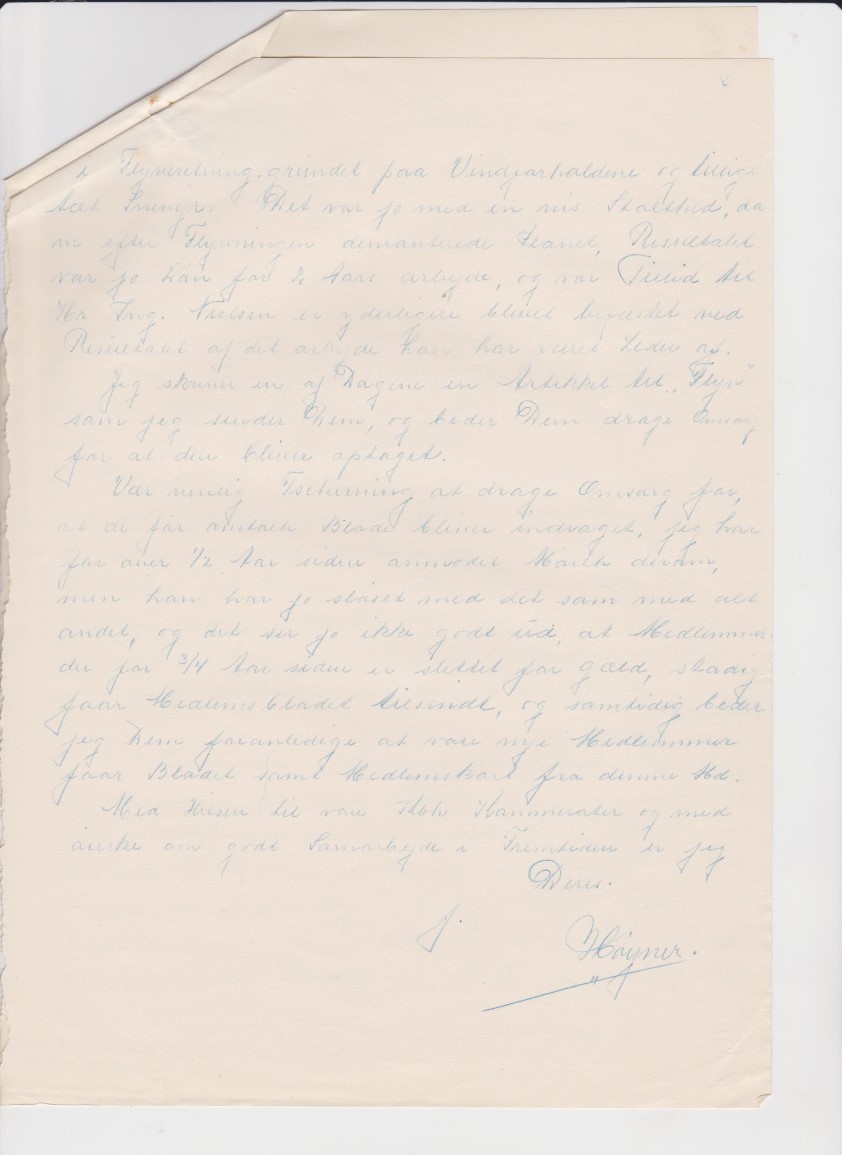 i Flyveretning grundet paa Vindforholdene og tillige
tæt Snevejr. Det var jo med en vis Stolthed, da
vi efter Flyvningen demonterede Planet, Resultatet
var jo Løn for ½ Aars arbejde, og vor Tillid til
Hr Ing. Nielsen er yderligere blevet befæstet ved
Resultatet af det arbejde han har været Leder af.
Jeg skriver en af Dagene en Artikkel til „Flyv"
som jeg sender Dem, og beder Dem drage Omsorg
for at den bliver optaget.
Vær venlig Tscherning at drage Omsorg for,
at de før omtalte Blade bliver inddraget, jeg har
for over 1/2 Aar siden anmodet March derom,
men han har jo sløset med det som med alt
andet, og det ser jo ikke godt ud, at Medlemmer
der for 3/4 Aar siden er slettet for Gæld, stadig
faar Medlemsbladet tilsendt, og samtidig beder
jeg Dem foranledige at vore nye Medlemmer
faar Bladet samt Medlemskort fra denne Md.
Med Hilsen til vore Kbh Kammerater og med
ønske om godt Samarbejde i Fremtiden er jeg
Deres.
J. Høyner.